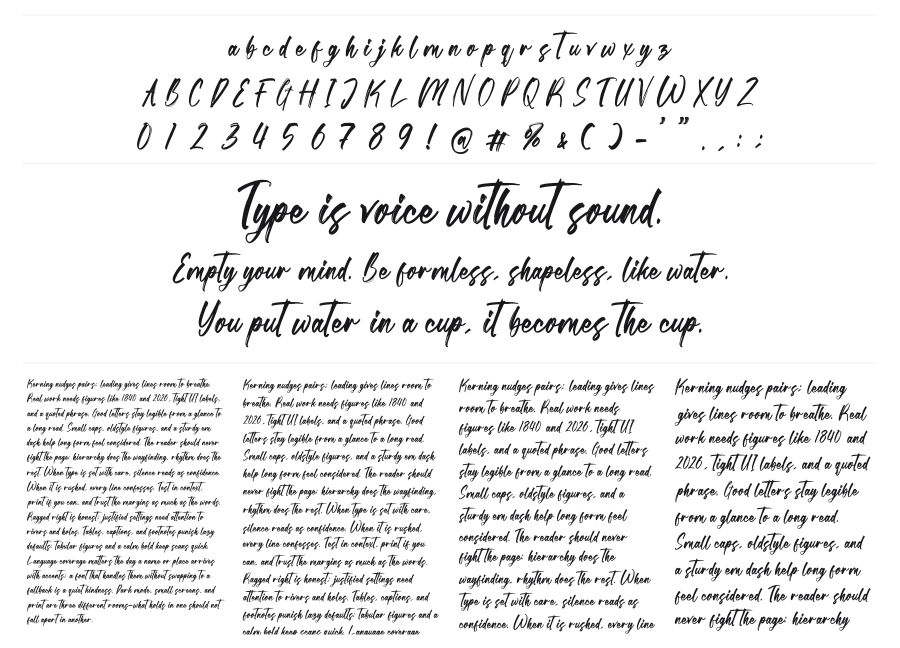 a b c d e f g h i j k l m n o p q r s t u v w x y z
A B C D E F G H I J K L M N O P Q R S T U V W X Y Z
0 1 2 3 4 5 6 7 8 9 ! @ # % & ( ) - ' " . , : ;
Type is voice without sound.
Empty your mind. Be formless, shapeless, like water.
You put water in a cup, it becomes the cup.
Kerning nudges pairs; leading gives lines room to breathe.
Real work needs figures like 1840 and 2026, tight UI labels,
and a quoted phrase. Good letters stay legible from a glance to
a long read. Small caps, oldstyle figures, and a sturdy em
dash help long form feel considered. The reader should never
fight the page: hierarchy does the wayfinding, rhythm does the
rest. When type is set with care, silence reads as confidence.
When it is rushed, every line confesses. Test in context,
print if you can, and trust the margins as much as the words.
Ragged right is honest; justified settings need attention to
rivers and holes. Tables, captions, and footnotes punish lazy
defaults. Tabular figures and a calm bold keep scans quick.
Language coverage matters the day a name or place arrives
with accents; a font that handles them without swapping to a
fallback is a quiet kindness. Dark mode, small screens, and
print are three different rooms—what holds in one should not
fall apart in another.
Kerning nudges pairs; leading gives lines room to
breathe. Real work needs figures like 1840 and
2026, tight UI labels, and a quoted phrase. Good
letters stay legible from a glance to a long read.
Small caps, oldstyle figures, and a sturdy em dash
help long form feel considered. The reader should
never fight the page: hierarchy does the wayfinding,
rhythm does the rest. When type is set with care,
silence reads as confidence. When it is rushed,
every line confesses. Test in context, print if you
can, and trust the margins as much as the words.
Ragged right is honest; justified settings need
attention to rivers and holes. Tables, captions, and
footnotes punish lazy defaults. Tabular figures and a
calm bold keep scans quick. Language coverage
Kerning nudges pairs; leading gives lines
room to breathe. Real work needs
figures like 1840 and 2026, tight UI
labels, and a quoted phrase. Good letters
stay legible from a glance to a long read.
Small caps, oldstyle figures, and a
sturdy em dash help long form feel
considered. The reader should never
fight the page: hierarchy does the
wayfinding, rhythm does the rest. When
type is set with care, silence reads as
confidence. When it is rushed, every line
Kerning nudges pairs; leading
gives lines room to breathe. Real
work needs figures like 1840 and
2026, tight UI labels, and a quoted
phrase. Good letters stay legible
from a glance to a long read.
Small caps, oldstyle figures, and
a sturdy em dash help long form
feel considered. The reader should
never fight the page: hierarchy